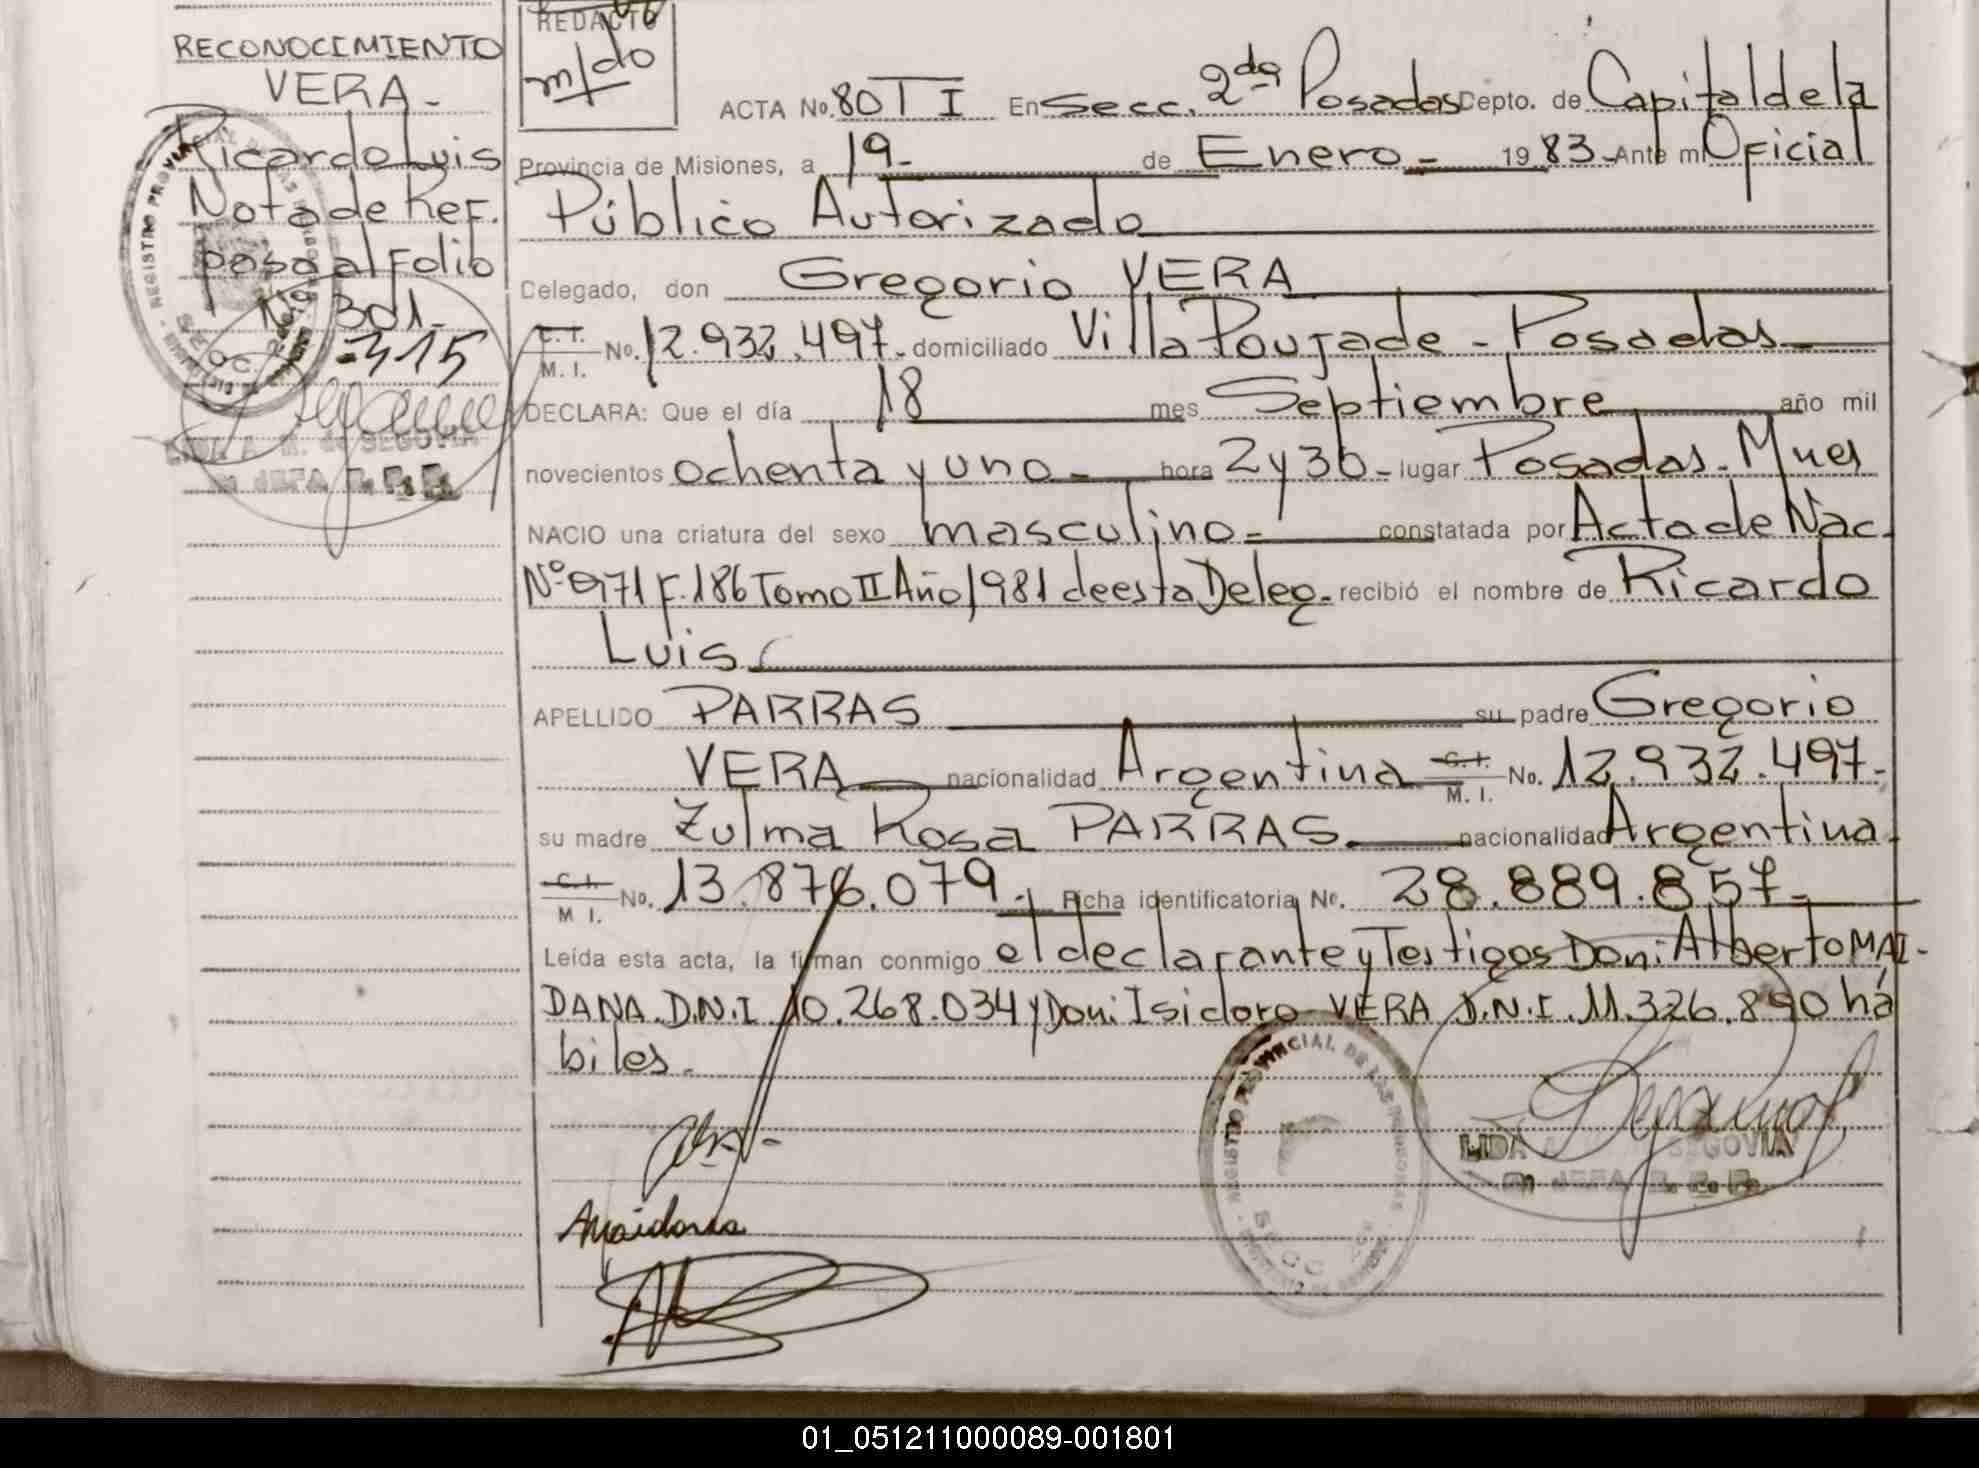 RECONOCIMIENTO
VERA-
Ricardo Luis
Nota de Ref.
pasa al Folio
Nº 301-
-315
LIDA A. M. de SEGOVIA
JEFA R. P. P.
REDACTO
m/do
ACTA No. 80 T I En Secc. 2da Posadas Depto. de Capital de la
Provincia de Misiones, a 19- de Enero- 1983- Ante mi Oficial
Público Autorizado
Delegado, don Gregorio VERA
C.I. M.I. No. 12.932.497- domiciliado Villa Poujade - Posadas-
DECLARA: Que el día 18 mes Septiembre año mil
novecientos ochenta y uno- hora 2 y 30- lugar Posadas- Mnes
NACIO una criatura del sexo masculino- constatada por Acta de Nac.
Nº 971 F. 186 Tomo II Año 1981 de esta Deleg. recibió el nombre de Ricardo
Luis
APELLIDO PARRAS su padre Gregorio
VERA nacionalidad Argentina C.I. M.I. No. 12.932.497-
su madre Zulma Rosa PARRAS- nacionalidad Argentina-
C.I. M I. No. 13.876.079- Ficha identificatoria No. 28.889.857-
Leída esta acta, la firman conmigo el declarante y Testigos Don: Alberto MAI-
DANA. D.N.I. 10.268.034 y Don: Isidoro VERA D.N.I. 11.326.890 há
biles.-
Amaidana
REGISTRO PROVINCIAL DE LAS PERSONAS
LIDA SEGOVIA
JEFA
01_051211000089-001801